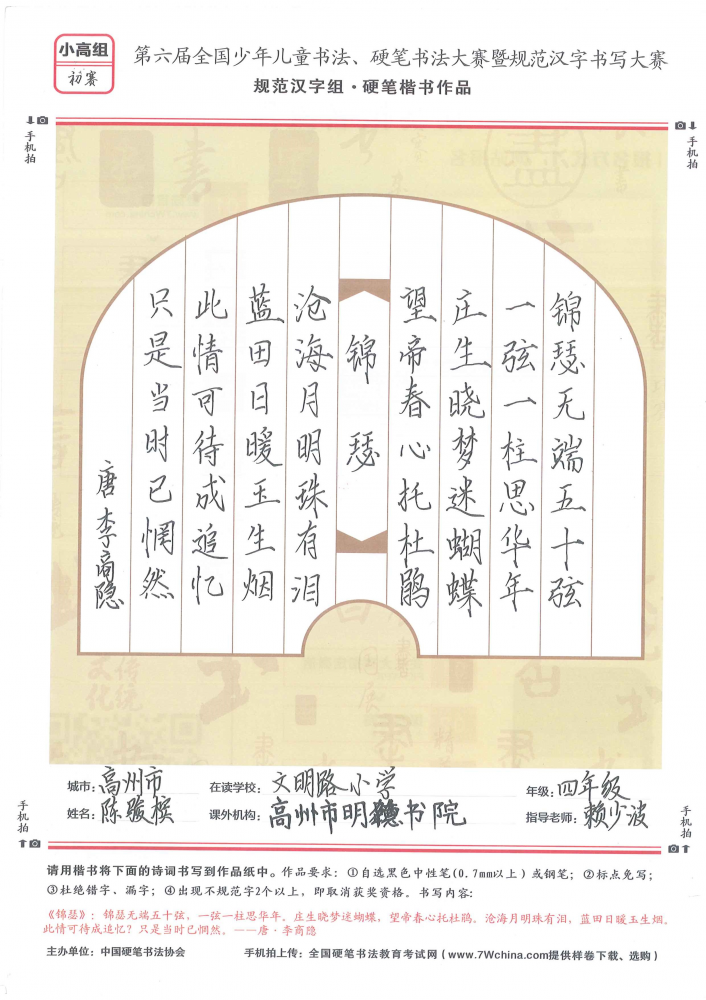 小高组
初赛
第六届全国少年儿童书法、硬笔书法大赛暨规范汉字书写大赛
规范汉字组·硬笔楷书作品
手机拍
手机拍
锦瑟无端五十弦
一弦一柱思华年
庄生晓梦迷蝴蝶
望帝春心托杜鹃
锦瑟
沧海月明珠有泪
蓝田日暖玉生烟
此情可待成追忆
只是当时已惘然
唐 李商隐
城市:高州市 在读学校:文明路小学 年级:四年级
姓名:陈骏槟 课外机构:高州市明德书院 指导老师:赖少波
手机拍
手机拍
请用楷书将下面的诗词书写到作品纸中。作品要求:①自选黑色中性笔(0.7mm以上)或钢笔;②标点免写;
③杜绝错字、漏字;④出现不规范字2个以上,即取消获奖资格。书写内容:
《锦瑟》:锦瑟无端五十弦,一弦一柱思华年。庄生晓梦迷蝴蝶,望帝春心托杜鹃。沧海月明珠有泪,蓝田日暖玉生烟。
此情可待成追忆?只是当时已惘然。——唐·李商隐
主办单位:中国硬笔书法协会 手机拍上传:全国硬笔书法教育考试网(www.7Wchina.com提供样卷下载、选购)